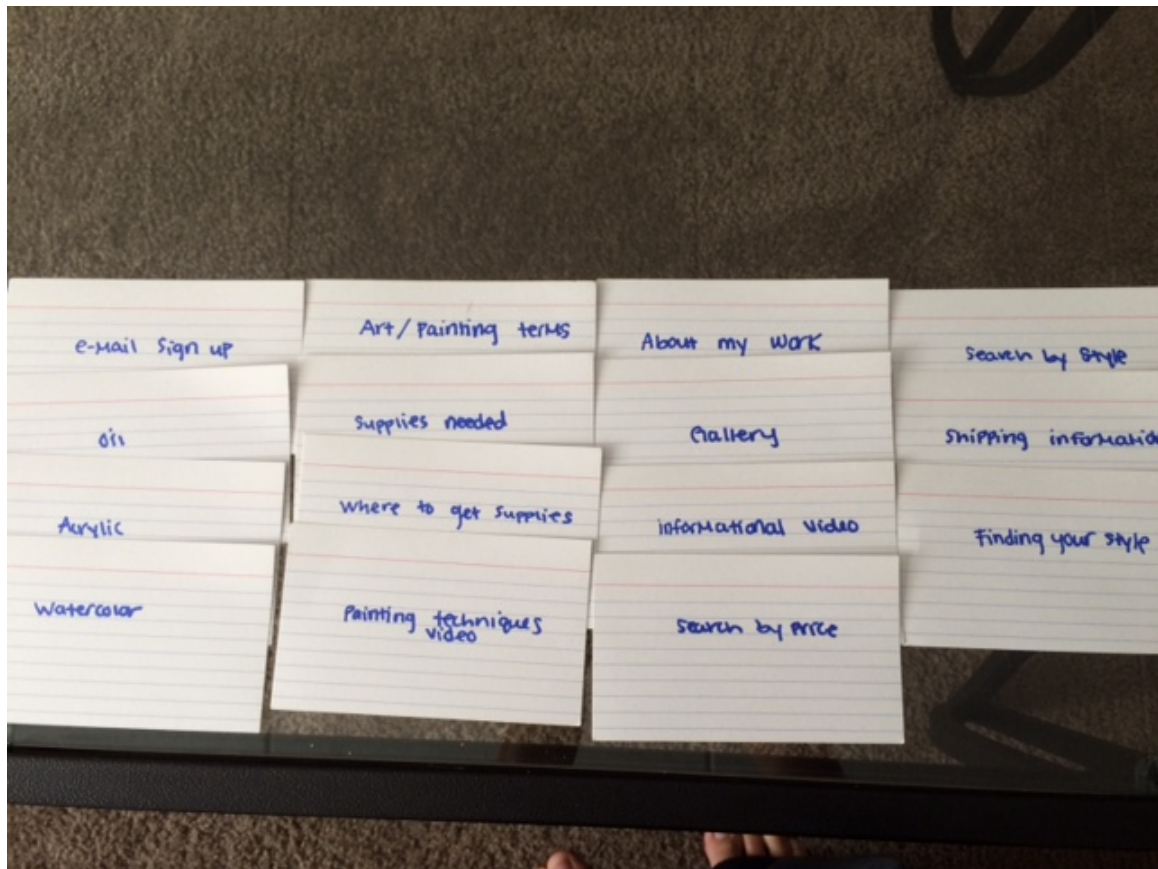 e-mail sign up
Oil
Acrylic
Watercolor
Art/Painting terms
Supplies needed
Where to get supplies
Painting techniques
video
About my work
Gallery
informational video
Search by Price
Search by style
Shipping informatio
Finding your style